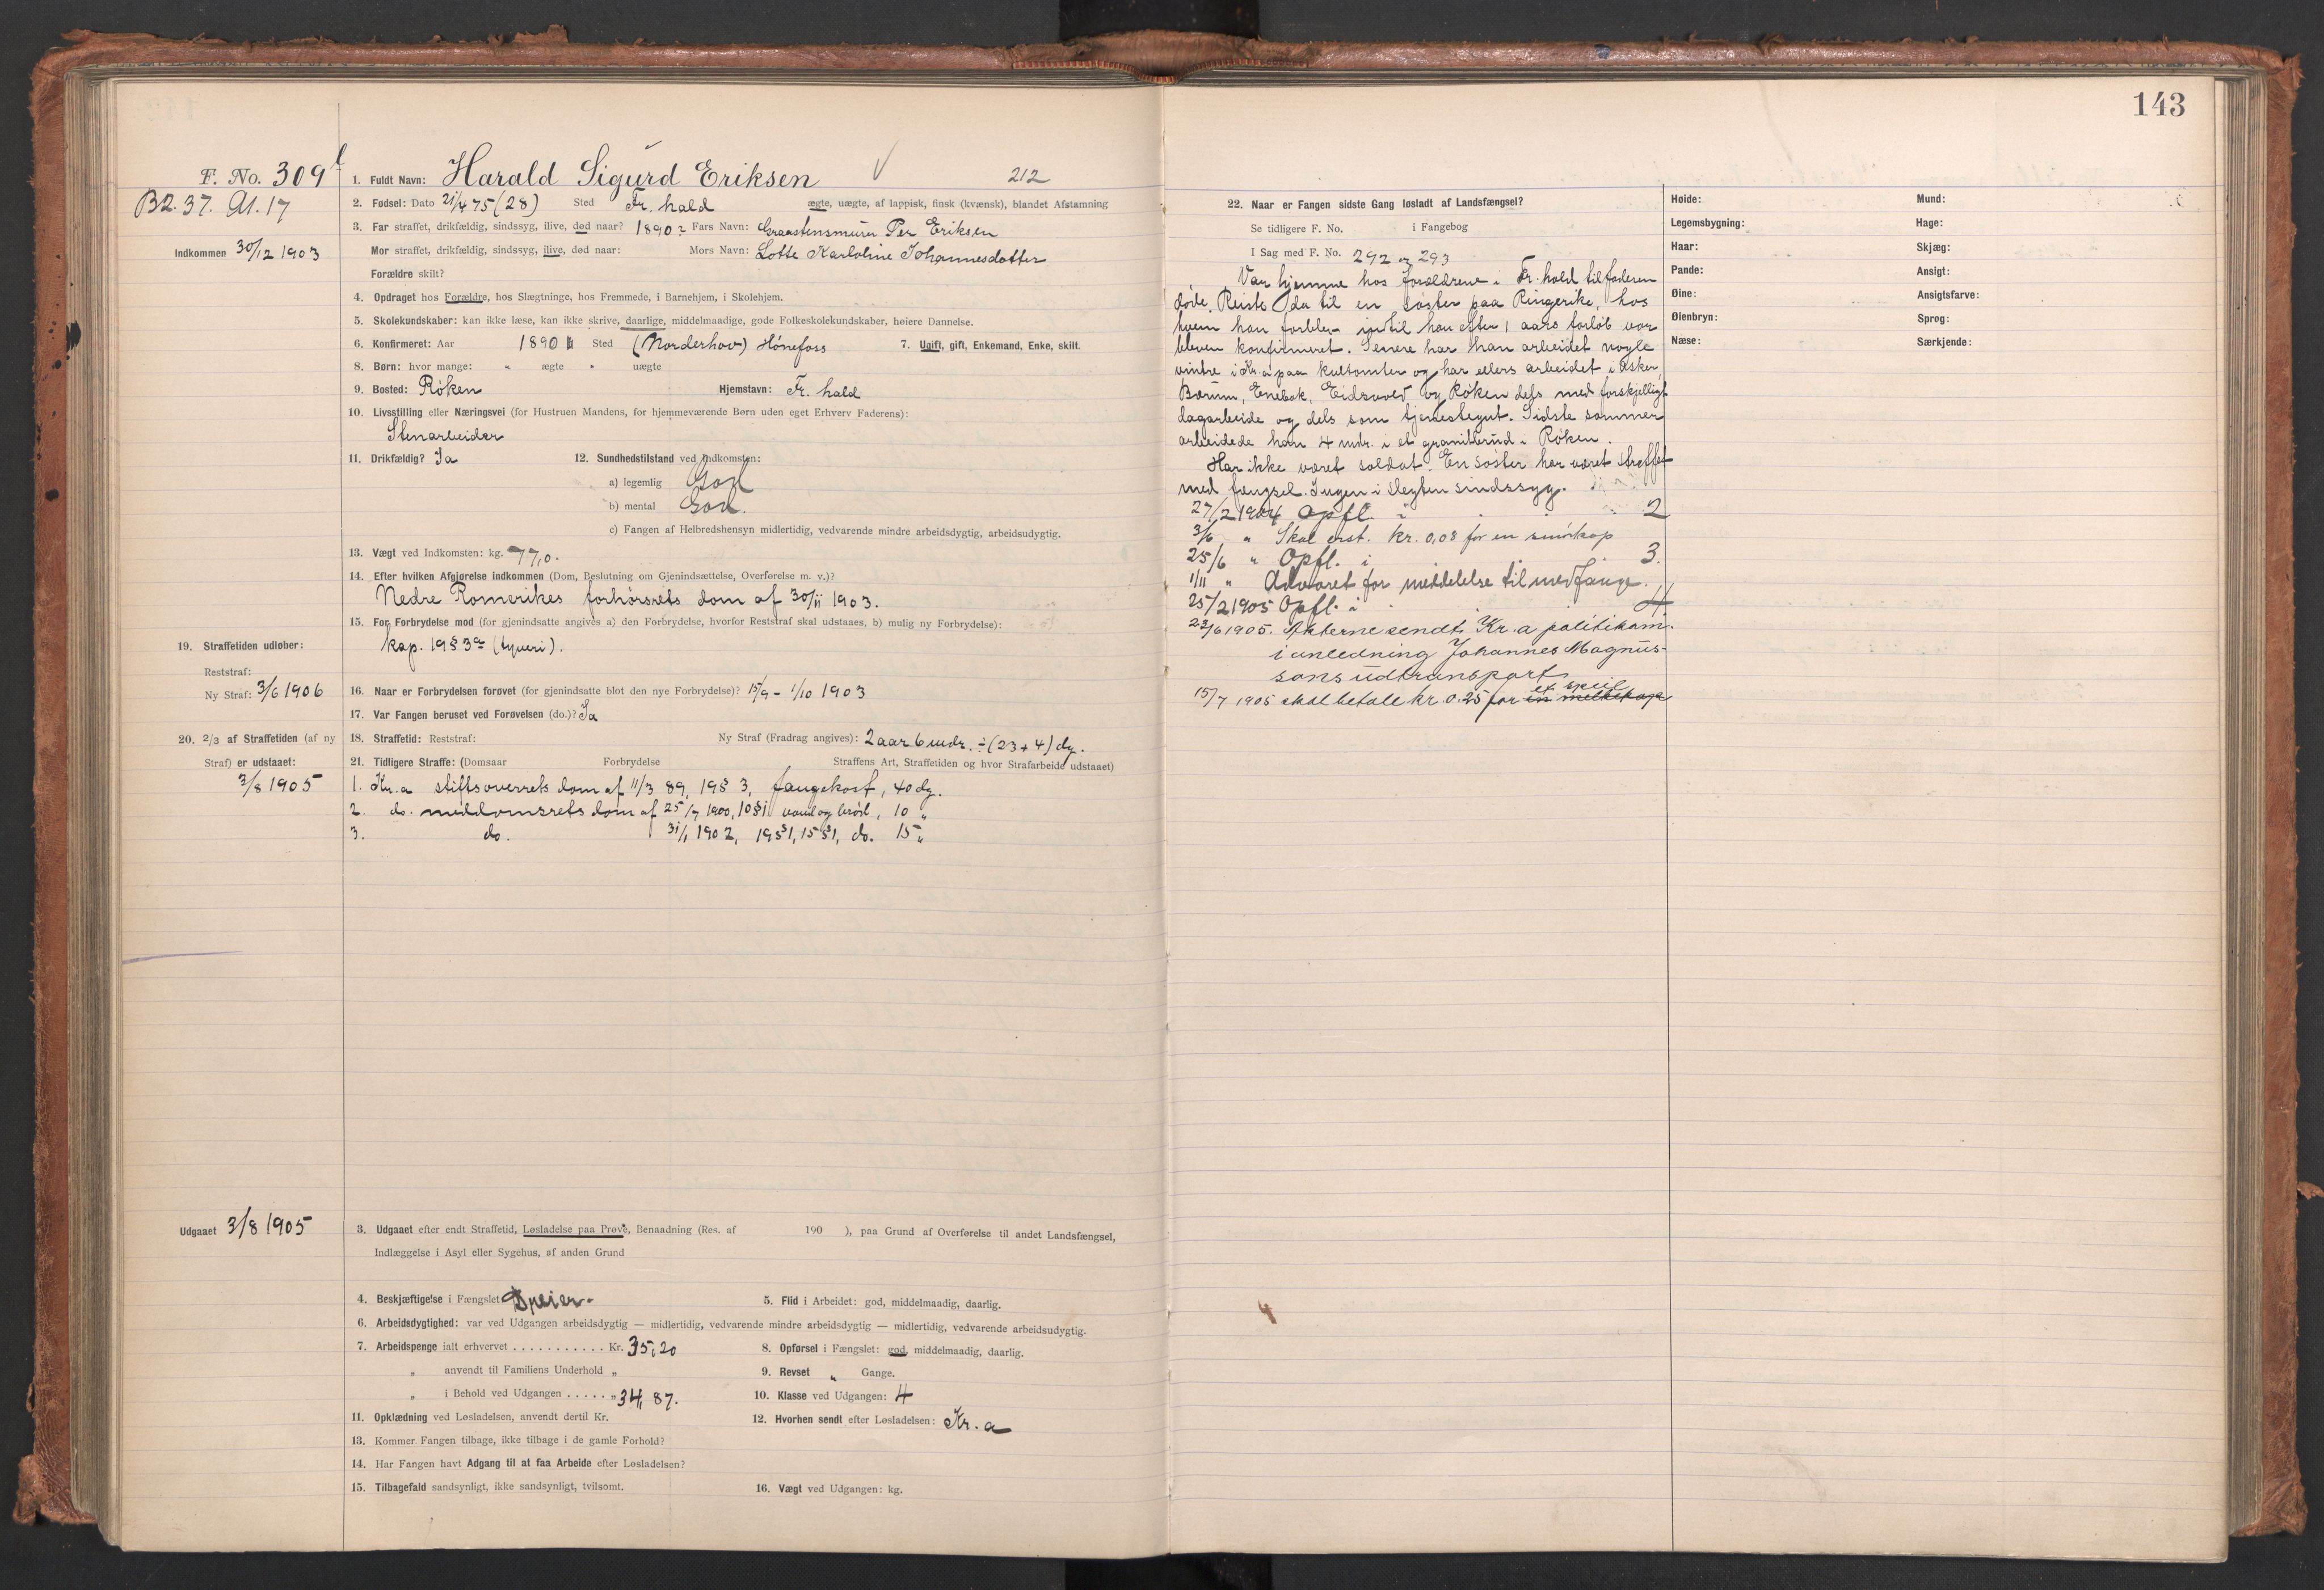 143
F. No. 309
B2. 37. A1. 17
Indkommen 30/12 1903
1. Fuldt Navn: Harald Sigurd Eriksen V 212
2. Fødsel: Dato 21/4 75 (28) Sted Fr. hald ægte, uægte, af lappisk, finsk (kvænsk), blandet Afstamning
3. Far straffet, drikfældig, sindssyg, ilive, død naar? 1890? Fars Navn: Graastensmurer Per Eriksen
Mor straffet, drikfældig, sindssyg, ilive, død naar: Mors Navn: Lotte Karoline Johannesdatter
Forældre skilt?
4. Opdraget hos Forældre, hos Slægtninge, hos Fremmede, i Barnehjem, i Skolehjem.
5. Skolekundskaber: kan ikke læse, kan ikke skrive, daarlige, middelmaadige, gode Folkeskolekundskaber, høiere Dannelse.
6. Konfirmeret: Aar 1890 Sted (Norderhov) Hønefoss 7. Ugift, gift, Enkemand, Enke, skilt.
8. Børn: hvor mange: " ægte " uægte
9. Bosted: Røken Hjemstavn: Fr. hald
10. Livsstilling eller Næringsvei (for Hustruen Mandens, for hjemmeværende Børn uden eget Erhverv Faderens):
Stenarbeider
11. Drikfældig? Ja 12. Sundhedstilstand ved Indkomsten:
a) legemlig God
b) mental God.
c) Fangen af Helbredshensyn midlertidig, vedvarende mindre arbeidsdygtig, arbeidsudygtig.
13. Vægt ved Indkomsten: kg. 77,0.
14. Efter hvilken Afgjørelse indkommen (Dom, Beslutning om Gjenindsættelse, Overførelse m. v.)?
Nedre Romerikes forhørsrets dom af 30/11 1903.
15. For Forbrydelse mod (for gjenindsatte angives a) den Forbrydelse, hvorfor Reststraf skal udstaaes, b) mulig ny Forbrydelse):
kap. 19 § 3a (tyveri).
19. Straffetiden udløber:
Reststraf:
Ny Straf: 3/6 1906
16. Naar er Forbrydelsen forøvet (for gjenindsatte blot den nye Forbrydelse)? 15/9 - 1/10 1903
17. Var Fangen beruset ved Forøvelsen (do.)? Ja
20. 2/3 af Straffetiden (af ny
Straf) er udstaaet:
3/8 1905
18. Straffetid: Reststraf: Ny Straf (Fradrag angives): 2 aar 6 mdr. ÷ (23 + 4) dg.
21. Tidligere Straffe: (Domsaar Forbrydelse Straffens Art, Straffetiden og hvor Strafarbeide udstaaet)
1. Kr.a stiftsoverrets dom af 11/3 89, 19 § 3, fangekost, 40 dg.
2. do. meddomsrets dom af 25/7 1900, 10 § 1 vand og brød, 10 "
3. do. 31/1 1902, 19 § 1, 15 § 1, do. 15 "
Udgaaet 3/8 1905
3. Udgaaet efter endt Straffetid, Løsladelse paa Prøve, Benaadning (Res. af 190 ), paa Grund af Overførelse til andet Landsfængsel,
Indlæggelse i Asyl eller Sygehus, af anden Grund
4. Beskjæftigelse i Fængslet Dreier. 5. Flid i Arbeidet: god, middelmaadig, daarlig.
6. Arbeidsdygtighed: var ved Udgangen arbeidsdygtig — midlertidig, vedvarende mindre arbeidsdygtig — midlertidig, vedvarende arbeidsudygtig.
7. Arbeidspenge ialt erhvervet . . . . . . . . . . . Kr. 35,20 8. Opførsel i Fængslet: god, middelmaadig, daarlig.
" anvendt til Familiens Underhold " 9. Revset " Gange.
" i Behold ved Udgangen . . . . . " 34,87. 10. Klasse ved Udgangen: 4
11. Opklædning ved Løsladelsen, anvendt dertil Kr. 12. Hvorhen sendt efter Løsladelsen: Kr. a
13. Kommer Fangen tilbage, ikke tilbage i de gamle Forhold?
14. Har Fangen havt Adgang til at faa Arbeide efter Løsladelsen?
15. Tilbagefald sandsynligt, ikke sandsynligt, tvilsomt. 16. Vægt ved Udgangen: kg.
22. Naar er Fangen sidste Gang løsladt af Landsfængsel?
Se tidligere F. No. i Fangebog
I Sag med F. No. 292 og 293
Var hjemme hos forældrene i Fr. hald til faderen
døde. Reiste da til en søster paa Ringerike, hos
hvem han forblev indtil han efter 1 aars forløb var
bleven konfirmeret. Senere har han arbeidet nogle
vintre i Kr.a paa kultomter og har ellers arbeidet i Asker,
Bærum, Enebak, Eidsvold og Røken dels med forskjelligt
dagarbeide og dels som tjenestegut. Sidste sommer
arbeidede han 4 mdr. i et granitbrud i Røken.
Har ikke været soldat. En søster har været straffet
med fængsel. Ingen i slegten sindssyg.
27/2 1904 Opfl. i 2
3/6 " Skal erst. kr. 0,08 for en smørkop
25/6 " Opfl. i 3.
1/11 " Advaret for meddelelse til medfange.
25/2 1905 Opfl. i 4
23/6 1905. Akterne sendt Kr.a politikam.
i anledning Johannes Magnus-
sons udtransport
15/7 1905 skal betale kr. 0.25 for en melkekop et speil
Høide:
Legemsbygning:
Haar:
Pande:
Øine:
Øienbryn:
Næse:
Mund:
Hage:
Skjæg:
Ansigt:
Ansigtsfarve:
Sprog:
Særkjende: